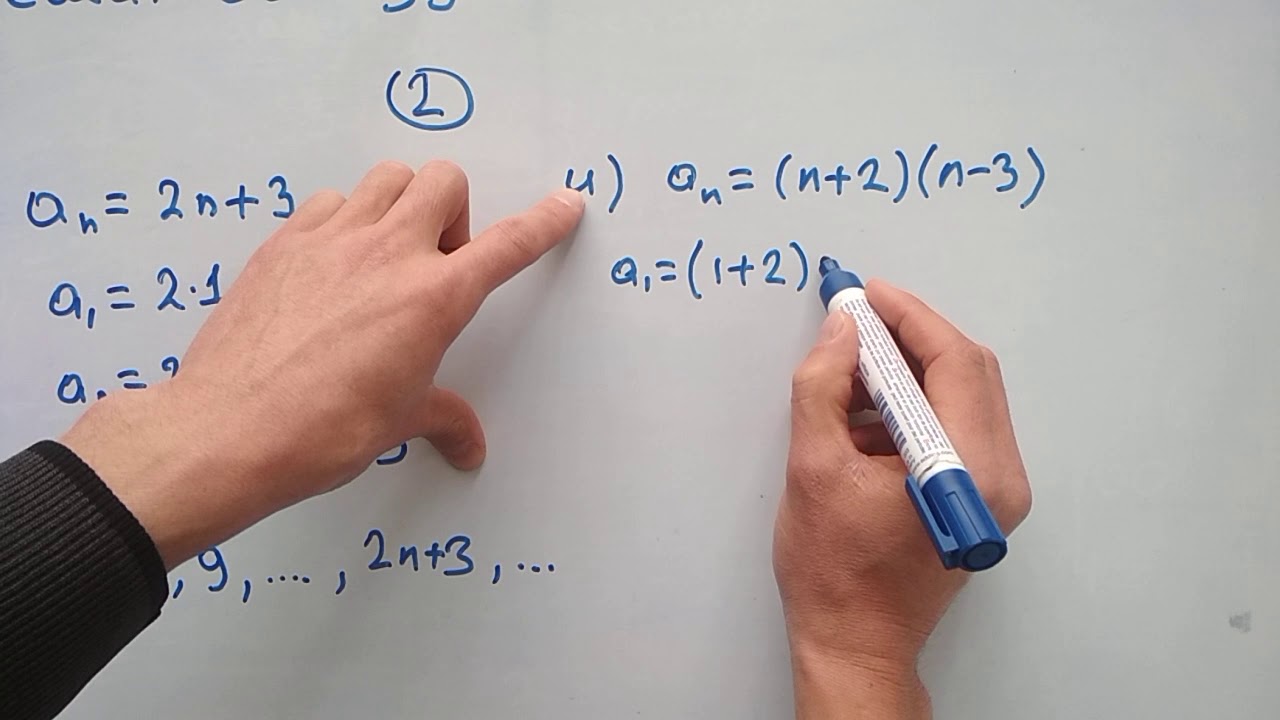 ②
aₙ = 2n+3
a₁ = 2·1
, 9, ...., 2n+3, ...
4) aₙ = (n+2)(n-3)
a₁ = (1+2)